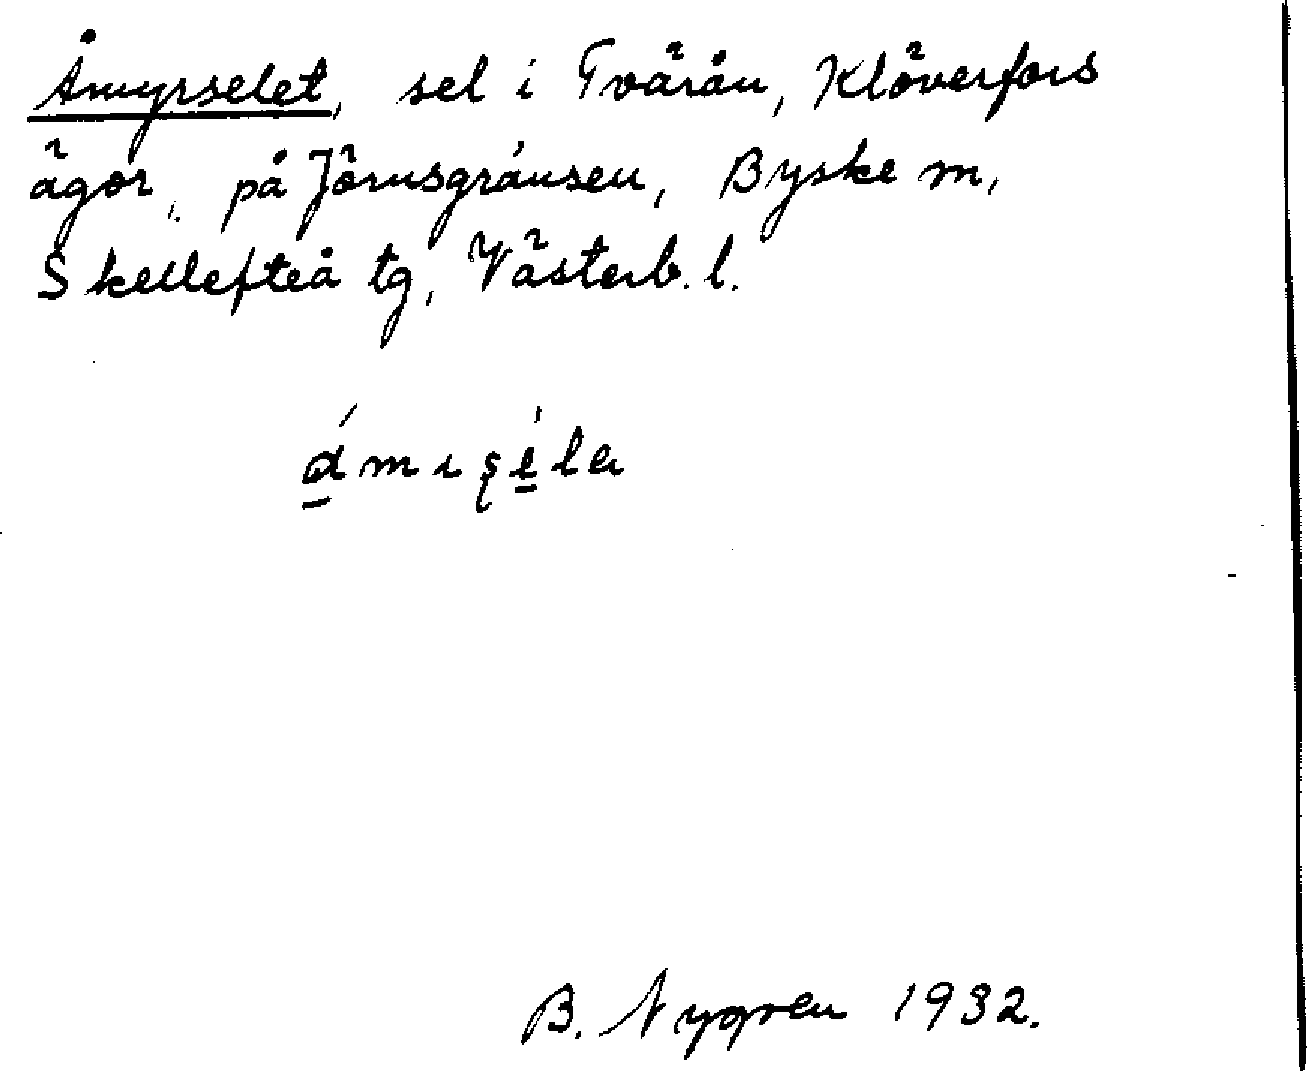 Åmyrselet, sel i Tvärån, Klöverfors
ägor, på Jörnsgränsen, Byske m,
Skellefteå tg, Västerb. l.
B. Nygren 1932.